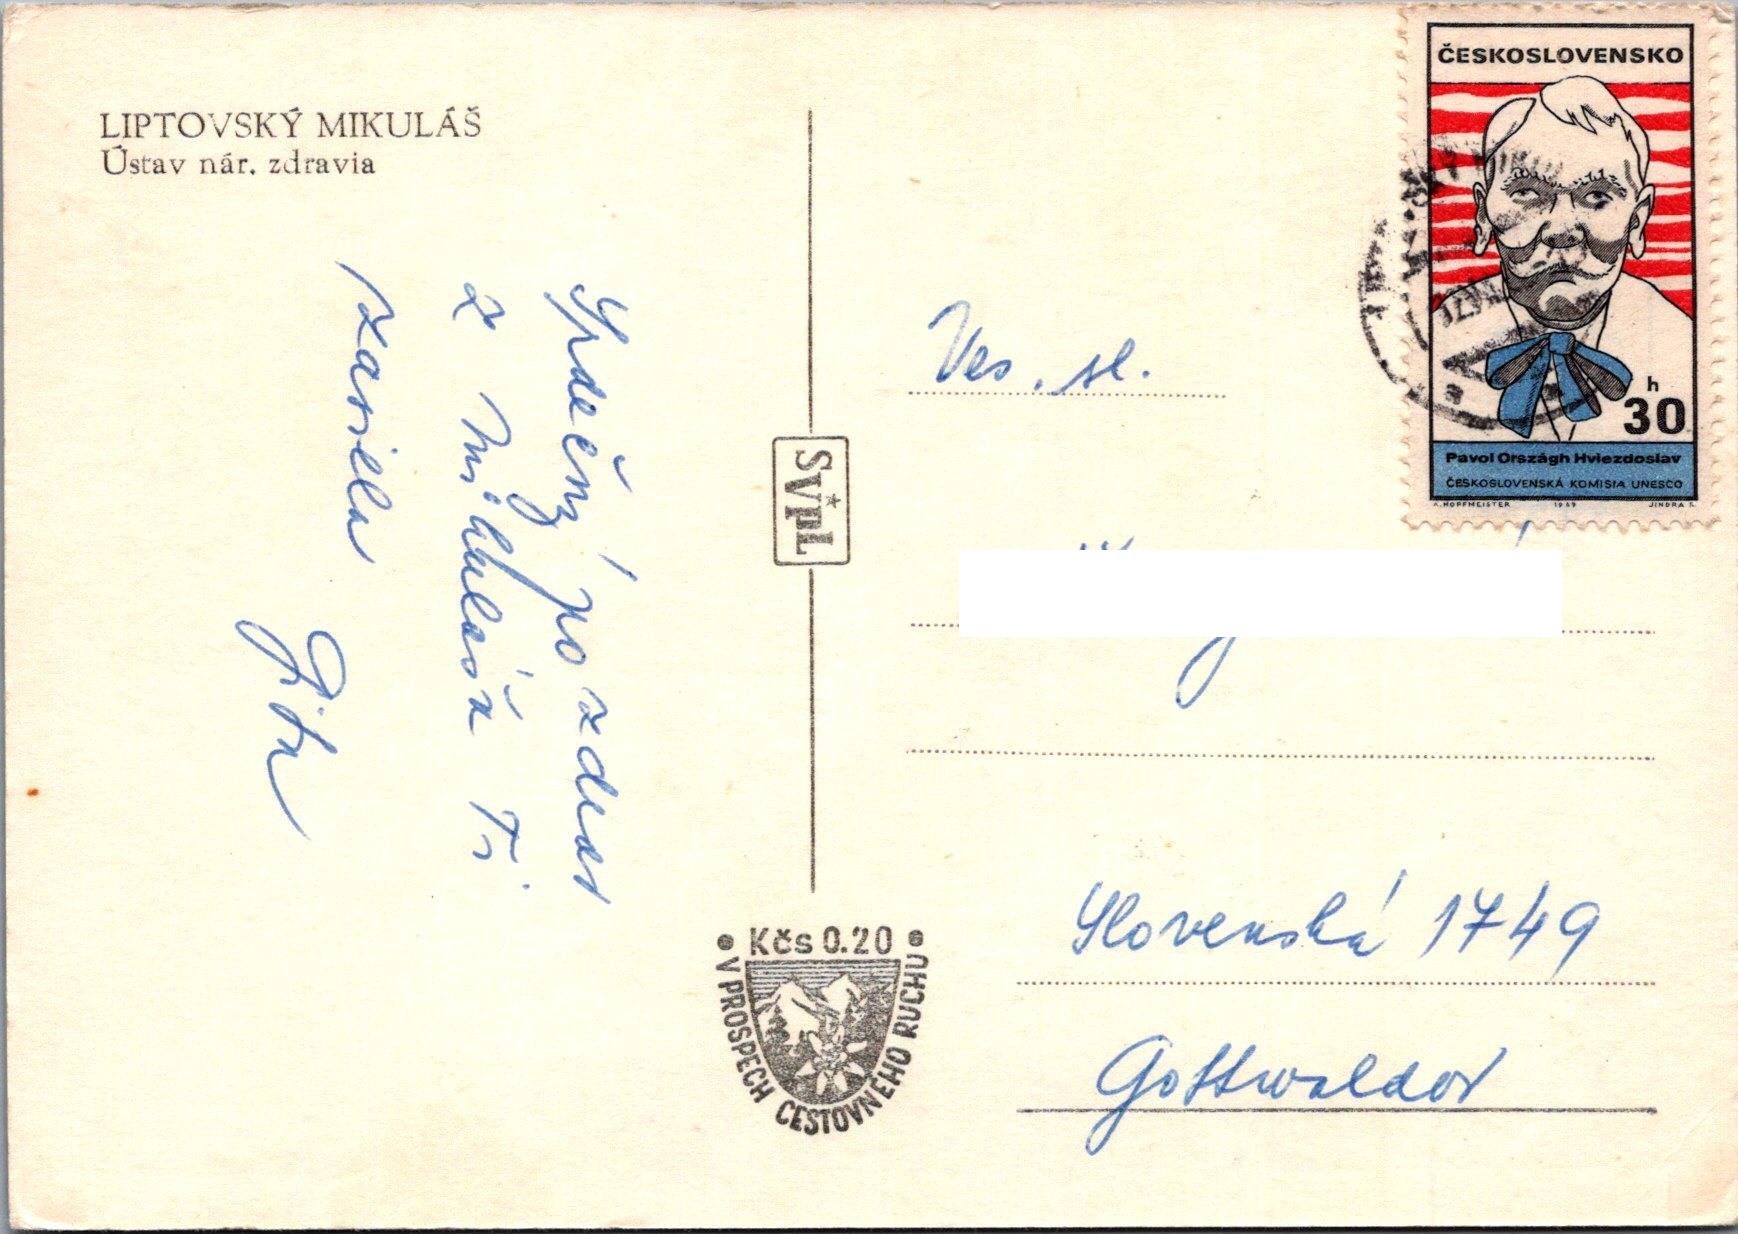 LIPTOVSKÝ MIKULÁŠ
Ústav nár. zdravia
Srdečný pozdrav
z Mikuláša Ti
zasiela
Gita
SVPL
Kčs 0.20
V PROSPECH CESTOVNÉHO RUCHU
ČESKOSLOVENSKO
h
30
Pavol Országh Hviezdoslav
ČESKOSLOVENSKÁ KOMISIA UNESCO
A. HOFFMEISTER 1969 JINDRA S.
Ves. sl.
Slovenská 1749
Gottwaldov